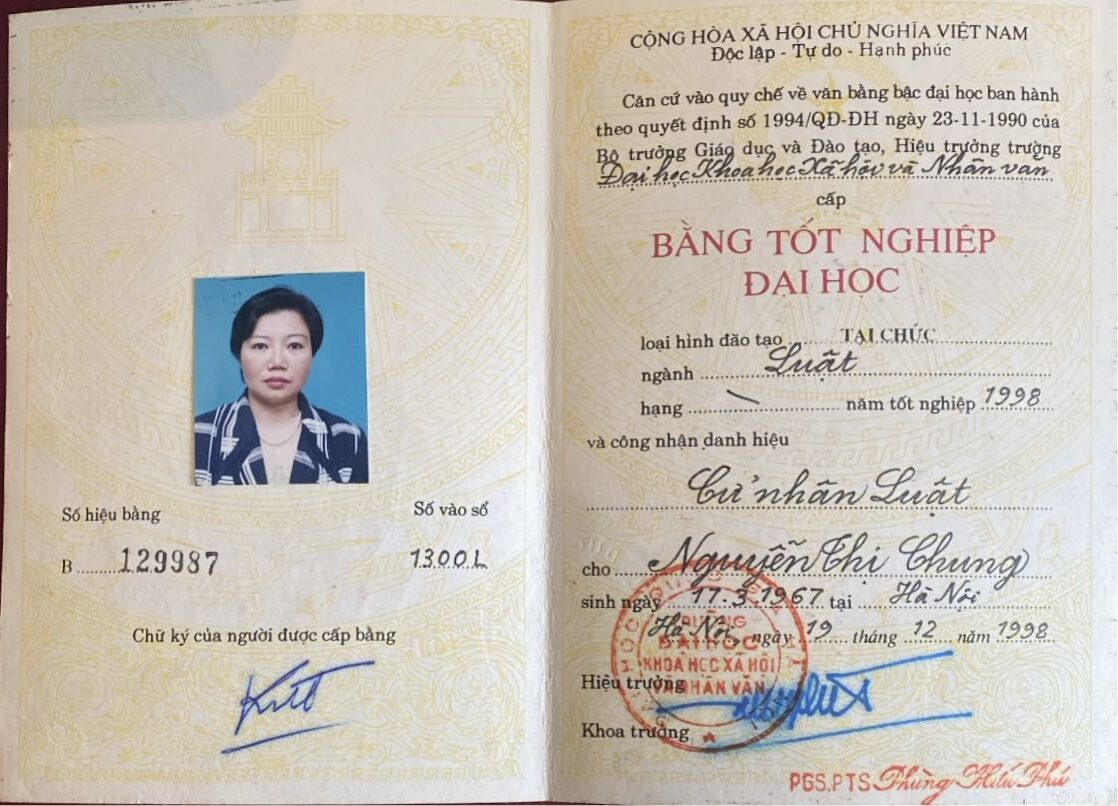 Số hiệu bằng
Số vào sổ
B 129987
1300L
Chữ ký của người được cấp bằng
CỘNG HÒA XÃ HỘI CHỦ NGHĨA VIỆT NAM
Độc lập - Tự do - Hạnh phúc
Căn cứ vào quy chế về văn bằng bậc đại học ban hành
theo quyết định số 1994/QĐ-ĐH ngày 23-11-1990 của
Bộ trưởng Giáo dục và Đào tạo, Hiệu trưởng trường
Đại học Khoa học Xã hội và Nhân văn
cấp
BẰNG TỐT NGHIỆP
ĐẠI HỌC
loại hình đào tạo TẠI CHỨC
ngành Luật
hạng \ năm tốt nghiệp 1998
và công nhận danh hiệu
Cử nhân Luật
cho Nguyễn Thị Chung
sinh ngày 17.3.1967 tại Hà Nội
Hà Nội, ngày 19 tháng 12 năm 1998
TRƯỜNG
ĐẠI HỌC
KHOA HỌC XÃ HỘI
VÀ NHÂN VĂN
Hiệu trưởng
Khoa trưởng
PGS.PTS Phùng Hữu Phú